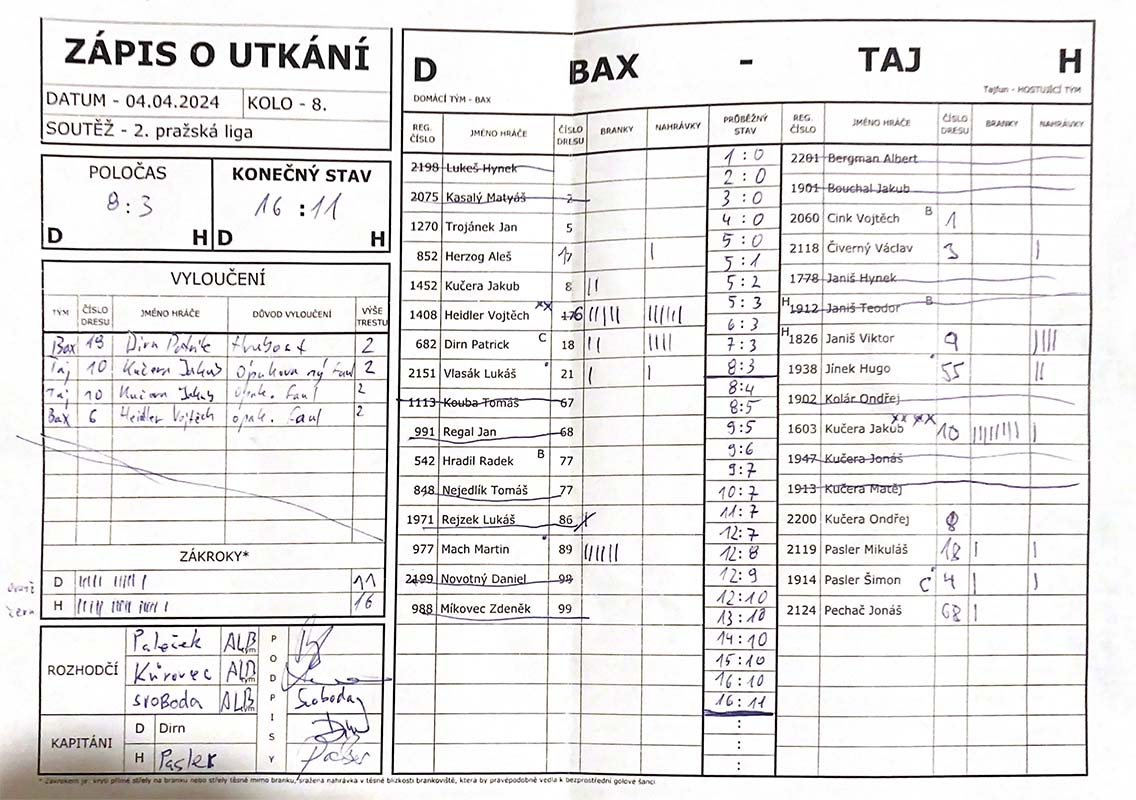 ZÁPIS O UTKÁNÍ
DATUM - 04.04.2024 KOLO - 8.
SOUTĚŽ - 2. pražská liga
POLOČAS KONEČNÝ STAV
8:3 16:11
D H D H
VYLOUČENÍ
TÝM ČÍSLO DRESU JMÉNO HRÁČE DŮVOD VYLOUČENÍ VÝŠE TRESTU
Bax Dirn Patrik Hrubost 2
Taj 10 Kučera Jakub Opakovaný faul 2
Taj 10 Kučera Jakub opak. faul 2
Bax 6 Heidler Vojtěch opak. faul 2
ZÁKROKY*
D 11
H 16
ROZHODČÍ
Paleček ALB tým
Kůrovec ALB tým
SVOBODA ALB tým Svoboda
PODPISY
KAPITÁNI
D Dirn
H Pasler
D BAX - TAJ H
DOMÁCÍ TÝM - BAX Tajfun - HOSTUJÍCÍ TÝM
REG. ČÍSLO JMÉNO HRÁČE ČÍSLO DRESU BRANKY NAHRÁVKY
2198 Lukeš Hynek
2075 Kasalý Matyáš 2
1270 Trojánek Jan 5
852 Herzog Aleš 17 |
1452 Kučera Jakub 8 ||
1408 Heidler Vojtěch xx 6
682 Dirn Patrick C 18 || ||||
2151 Vlasák Lukáš 21 | |
1113 Kouba Tomáš 67
991 Regal Jan 68
542 Hradil Radek B 77
848 Nejedlík Tomáš 77
1971 Rejzek Lukáš 86
977 Mach Martin 89
2199 Novotný Daniel 98
988 Míkovec Zdeněk 99
PRŮBĚŽNÝ STAV
1:0
2:0
3:0
4:0
5:0
5:1
5:2
5:3
6:3
7:3
8:3
8:4
8:5
9:5
9:6
9:7
10:7
11:7
12:7
12:8
12:9
12:10
13:10
14:10
15:10
16:10
16:11
:
:
:
REG. ČÍSLO JMÉNO HRÁČE ČÍSLO DRESU BRANKY NAHRÁVKY
2201 Bergman Albert
1901 Bouchal Jakub
2060 Cink Vojtěch B 1
2118 Čiverný Václav 3 |
1778 Janiš Hynek
H 1912 Janiš Teodor B
H 1826 Janiš Viktor 9 ||||
1938 Jínek Hugo 55 ||
1902 Kolár Ondřej
1603 Kučera Jakub xx xx 10 |
1947 Kučera Jonáš
1913 Kučera Matěj
2200 Kučera Ondřej 8
2119 Pasler Mikuláš 18 | |
1914 Pasler Šimon C 4 | |
2124 Pechač Jonáš 68 |
* Zákrokem je: krytí přímé střely na branku nebo střely těsně mimo branku, sražena nahrávka v těsné blízkosti brankoviště, která by pravěpodobně vedla k bezprostřední gólové šanci.